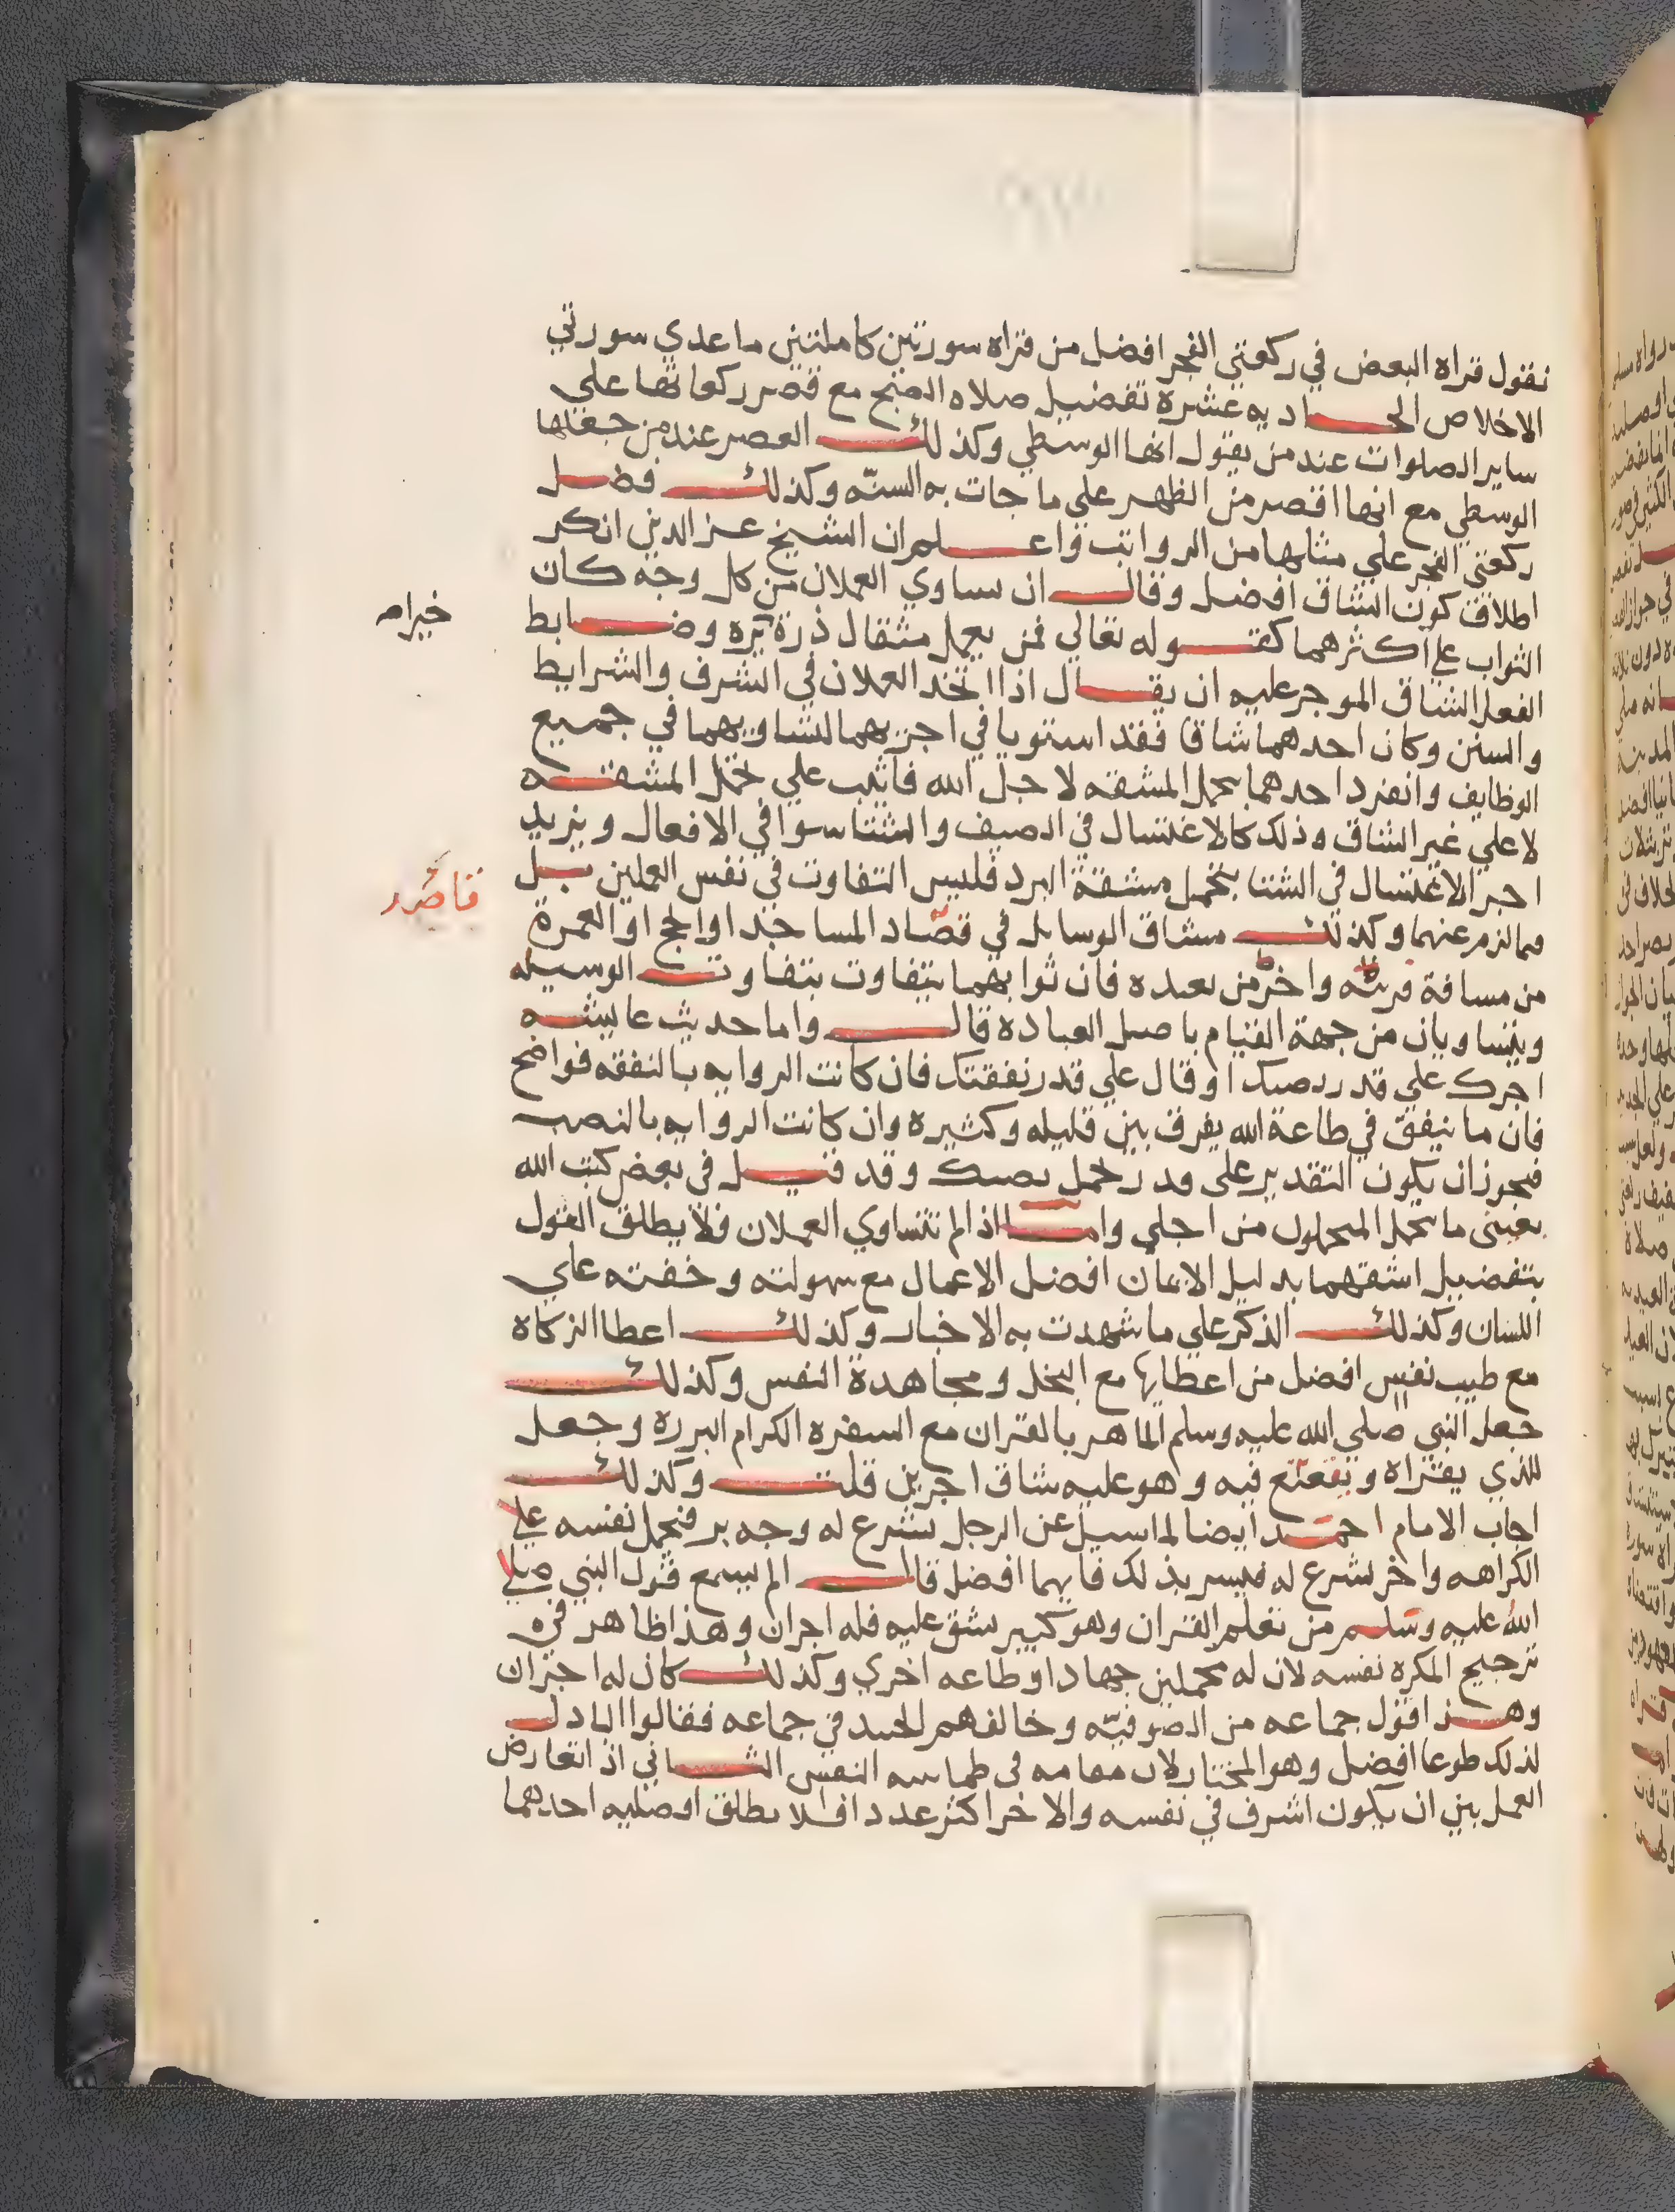 نقول قراة البعض في ركعتي الفجر افضل من قراه سورتين كاملتين ما عدي سورتي
الاخلاص الحاديه عشرة تفضيل صلاه الصبح مع قصر ركعاتها علي
ساير الصلوات عند من يقول انها الوسطي وكذلك العصر عند من جعلها
الوسطي مع انها اقصر من الظهر علي ما جات به السنّه وكذلك فضل
ركعتي الفجر علي مثلها من الرواتب واعلم ان الشيخ عز الدين انكر
اطلاق كون الشاق افضل وقال ان تساوي العملان من كل وجه كان
الثواب علي اكثرهما كقوله تعالي فمن يعمل مثقال ذرة يره وضابط
خيرا
الفعل الشاق الموجر عليه ان يقال اذا اتحد العملان في الشرف والشرايط
والسنن وكان احدهما شاقا فقد استويا في اجريهما لتساويهما في جميع
الوظايف وانفرد احدهما بتحمل المشقه لاجل الله فاثيب علي تحمل المشقه
لا علي غير الشاق وذلك كالاغتسال في الصيف والشتا سوا في الافعال ويزيد
اجر الاغتسال في الشتا بتحمل مشقة البرد فليس التفاوت في نفس العملين بل
فيما لزم عنهما وكذلك مشاق الوسايل في قصّاد المساجد او الحج او العمرة
من مسافة قريبه واخر من بعيده فان ثوابهما يتفاوت بتفاوت الوسيله
ويتساويان من جهة القيام باصل العباده قال واما حديث عايشه
اجرك علي قدر نصبك او قال علي قدر نفقتك فان كانت الروايه بالنفقه فواضح
فان ما ينفق في طاعة الله يفرق بين قليله وكثيره وان كانت الروايه بالنصب
فيجوز ان يكون التقدير علي قدر تحمل نصبك وقد قيل في بعض كتب الله
بعيني ما يتحمل المتحملون من اجلي واما اذا لم تتساوي العملان فلا يطلق القول
بتفضيل اشقهما بدليل الايمان افضل الاعمال مع سهولته وخفته علي
اللسان وكذلك الذكر علي ما شهدت به الاخبار وكذلك اعطا الزكاة
مع طيب نفس افضل من اعطايها مع البخل ومجاهدة النفس وكذلك
جعل النبي صلي الله عليه وسلم الماهر بالقران مع السفره الكرام البرره وجعل
للذي يقراه ويتعتع فيه وهو عليه شاق اجرين قلت وكذلك
اجاب الامام احمد ايضا لما سيل عن الرجل يشرع له وجه بر فيحمل نفسه علي
الكراهه واخر يشرع له فيسر بذلك فايهما افضل قال الم تسمع قول النبي صلي
الله عليه وسلم من تعلم القران وهو كبير يشق عليه فله اجران وهذا ظاهر في
ترجيح المكره نفسه لان له عملين جهادا وطاعه اخري وكذلك كان له اجران
وهذا قول جماعه من الصوفيّه وخالفهم الجنيد في جماعه فقالوا الباذل
لذلك طوعا افضل وهو المختار لان مقامه في طمانينه النفس الثاني اذا تعارض
العملين ان يكون اشرف في نفسه والاخر اكثر عددا فلا يطلق افضليه احدهما